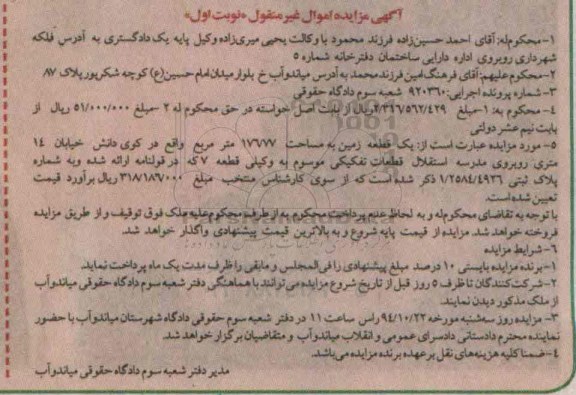 آگهی مزایده اموال غیر منقول «نوبت اول»
۱- محکوم‌له: آقای احمد حسین‌زاده فرزند محمود با وکالت یحیی میری‌زاده وکیل پایه یک دادگستری به آدرس فلکه
شهرداری روبروی اداره دارایی ساختمان دفترخانه شماره ۵
۲- محکوم علیهم: آقای فرهنگ امین فرزند محمد به آدرس میاندوآب خ بلوار میدان امام حسین(ع) کوچه شکرپور پلاک ۸۷
۳- شماره پرونده اجرایی: ۹۲۰۳۶۰ شعبه سوم دادگاه حقوقی
۴- محکوم به: ۱- مبلغ ۲/۳۱۶/۵۶۲/۴۲۹ ریال از بابت اصل خواسته در حق محکوم له ۲- مبلغ ۵۱/۰۰۰/۰۰۰ ریال از
بابت نیم عشر دولتی
۵- مورد مزایده عبارت است از: یک قطعه زمین به مساحت ۱۷۶/۷۷ متر مربع واقع در کوی دانش خیابان ۱۴
متری روبروی مدرسه استقلال قطعات تفکیکی موسوم به وکیلی قطعه ۷ که در قولنامه ارائه شده و به شماره
پلاک ثبتی ۱/۲۵۸۴/۴۹۳۶ ذکر شده است که از سوی کارشناس منتخب مبلغ ۳۱۸/۱۸۶/۰۰۰ ریال برآورد قیمت
تعیین شده است.
با توجه به تقاضای محکوم‌له و به لحاظ عدم پرداخت محکوم به از طرف محکوم علیه ملک فوق توقیف و از طریق مزایده
فروخته خواهد شد. مزایده از قیمت پایه شروع و به بالاترین قیمت پیشنهادی واگذار خواهد شد.
۶- شرایط مزایده
۱- برنده مزایده بایستی ۱۰ درصد مبلغ پیشنهادی را فی‌المجلس و مابقی را ظرف مدت یک ماه پرداخت نماید.
۲- شرکت‌کنندگان تا ظرف ۵ روز قبل از تاریخ شروع مزایده می‌توانند با هماهنگی دفتر شعبه سوم دادگاه حقوقی میاندوآب
از ملک مذکور دیدن نمایند.
۳- مزایده روز سه‌شنبه مورخه ۹۴/۱۰/۲۲ راس ساعت ۱۱ در دفتر شعبه سوم حقوقی دادگاه شهرستان میاندوآب با حضور
نماینده محترم دادستانی دادسرای عمومی و انقلاب میاندوآب و متقاضیان برگزار خواهد شد.
۴- ضمنا کلیه هزینه‌های نقل بر عهده برنده مزایده می‌باشد.
مدیر دفتر شعبه سوم دادگاه حقوقی میاندوآب